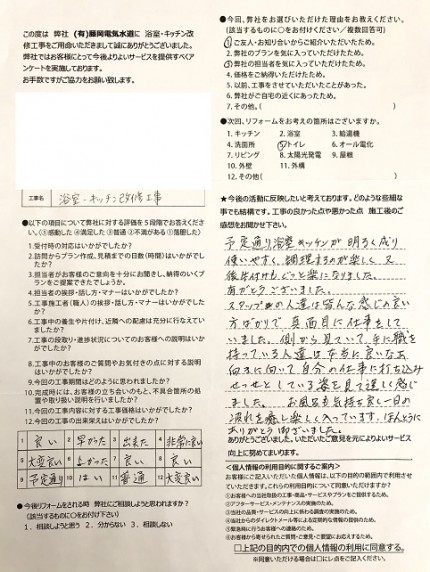 この度は 弊社 (有)藤岡電気水道に 浴室・キッチン改
修工事をご用命いただきまして誠にありがとうございました。
弊社ではお客様にとって今後よりよいサービスを提供すべくア
ンケートを実施しております。
お手数ですがご協力をお願い致します。
工事名 浴室・キッチン改修工事
●以下の項目について弊社に対する評価を5段階でお答えくださ
い。(①感動した ②満足した ③普通 ④不満がある ⑤落胆した)
1.受付時の対応はいかがでしたか?
2.訪問からプラン作成、見積までの日数(時間)はいかがでし
たか?
3.担当者がお客様のご意向を十分にお聞きし、納得のいくプ
ランをご提案できたでしょうか。
4.担当者の挨拶・話し方・マナーはいかがでしたか?
5.工事施工者(職人)の挨拶・話し方・マナーはいかがでした
か?
6.工事中の養生や片付け、近隣への配慮は充分に行なえてい
ましたか?
7.工事の段取り・進捗状況についてのお客様への説明はいか
がでしたか?
8.工事中のお客様のご質問やお気付きの点に対する説明
はいかがでしたか?
9.今回の工事期間はどのように思われましたか?
10.完成時には、お客様の立ち会いのもと、不具合箇所の処
置や取り扱い説明を行いましたか?
11.今回の工事内容に対する工事価格はいかがでしたか?
12.今回の工事の出来栄えはいかがでしたか?
1 良い 2 早かった 3 出来た 4 非常に良い
5 大変良い 6 よかった 7 良い 8 良い
9 予定通り 10 はい 11 普通 12 大変良い
●今後リフォームをされる時 弊社にご相談しようと思われますか?
(該当するものに○をお付け下さい)
1. 相談しようと思う 2. 分からない 3. 相談しない
●今回、弊社をお選びいただけた理由をお教えください。
(該当するものに○をお付けください/複数回答可)
1.ご友人・お知り合いからご紹介いただいたため。
2.弊社のプランを気に入っていただけたため。
3.弊社の担当者を気に入っていただけたため。
4.価格をご納得いただけたため。
5.以前、工事をさせていただいたことがあった。
6.弊社がご自宅の近くにあったため。
7.その他。( )
●次回、リフォームをお考えの箇所はございますか。
1.キッチン 2.浴室 3.給湯機
4.洗面所 5.トイレ 6.オール電化
7.リビング 8.太陽光発電 9.屋根
10.外壁 11.外構
12.その他( )
★今後の活動に反映したいと考えております。どのような些細な
事でも結構です。工事の良かった点や悪かった点 施工後のご
感想をお聞かせ下さい。
予定通り浴室キッチンが明るく成り
使いやすく、調理するのが楽しく、又
後片付けもぐっと楽になりました。
ありがとうございました。
スタッフの人達は皆んな感じの良い
方ばかりで、真面目に仕事をして
いました。側から見ていて、手に職を
持っている人達は本当に良いなあ、
向きに向いて、自分の仕事に打ち込み
せっせとしている姿を見て逞しく感じ
ました。お風呂も気持ち良く一日の
疲れを癒し楽しく入っています。ほんとうに
ありがとうございました。
ありがとうございました。いただいたご意見を元によりよいサービス
向上に努めてまいります。
<個人情報の利用目的に関するご案内>
お客様にご記入いただいた個人情報は、以下の目的の範囲内で利用させ
ていただきます。これらの利用目的についてご同意いただけますか?
①お客様への当社取扱の工事・商品・サービスやプランをご提供するため。
②アフターサービス・メンテナンスの実施のため。
③当社の品質・サービスの向上に係わる調査の実施のため。
④当社からのダイレクトメール等による定期的な情報の提供のため。
⑤緊急時に行うお客様への連絡のため。
⑥お客様から寄せられたご質問・ご意見・ご要望にお応えするため。
□上記の目的内での個人情報の利用に同意する。
※同意いただける場合は□に✓点をご記入ください。